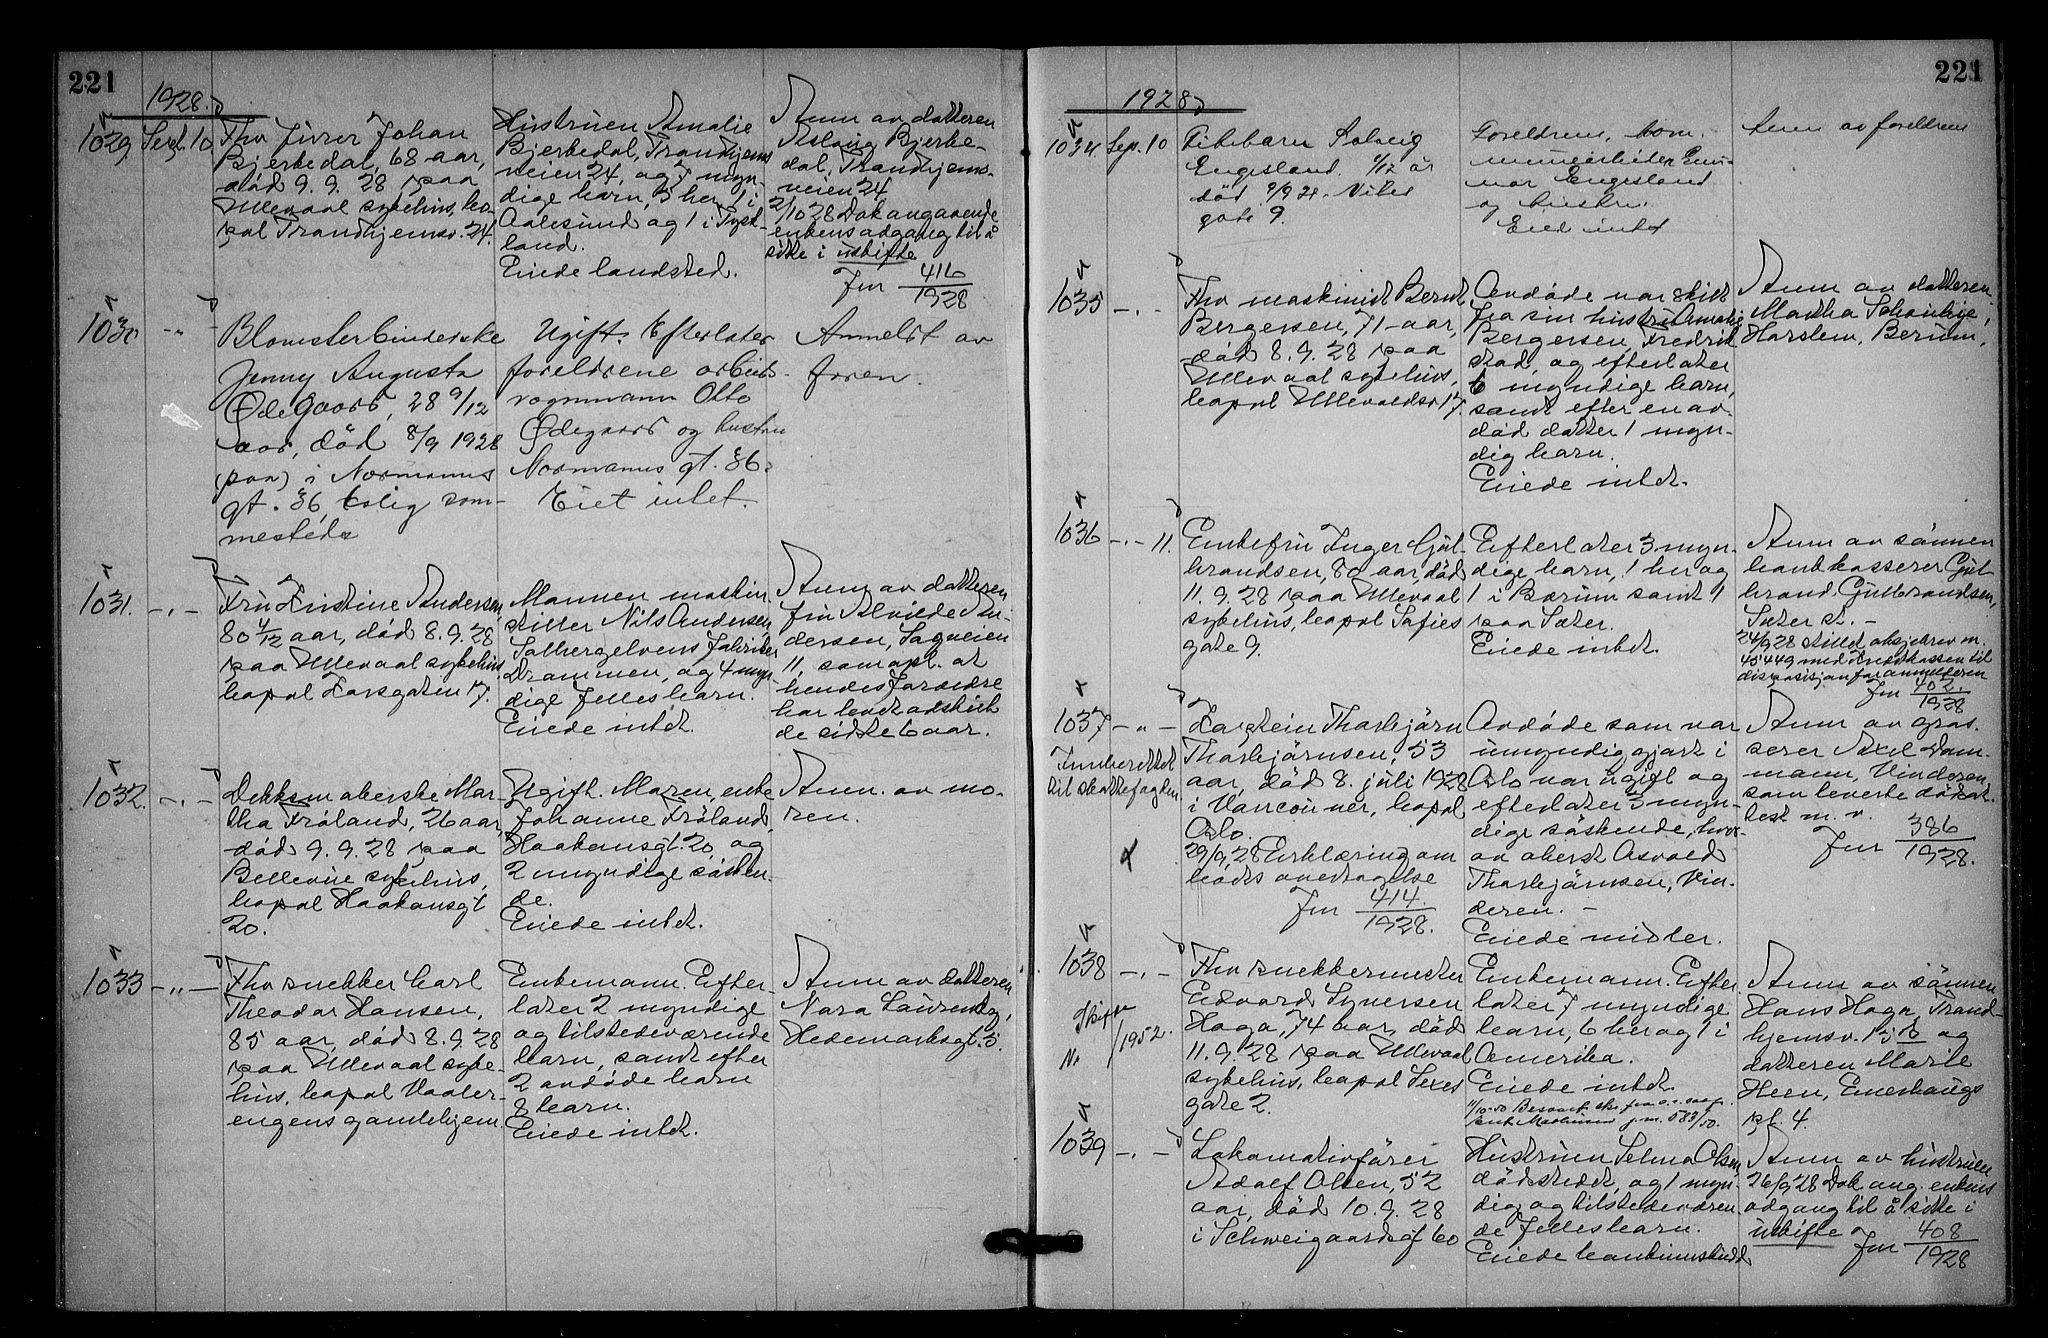 221
1928.
1029. Sept. 10.
Fhv fyrer Johan
Bjerkedal, 68 aar,
död 9. 9. 28 paa
Ullevaal sykehus, bo-
pæl Trondhjemsv. 24.
Hustruen Amalie
Bjerkedal, Trondhjems
veien 24, og 7 myn-
dige barn, 5 her, 1 i
Aalesund og 1 i Tysk-
land.
Eiede landsted.
Anm av datteren
Aslaug Bjerke-
dal, Trondhjems-
veien 24
2/10 28 Dok angaaende
enkens adgang til å
sitte i uskifte
Jnr 416
1928
1030 -"-
Blomsterbinderske
Jenny Augusta
Ødegaard, 28 9/12
aar, död 8/9 1928
(paa) i Normanns
gt. 36, bolig sam-
mesteds
Ugift. Efterlater
foreldrene arbeids-
vognmann Otto
Ødegaard og hustru
Normanns gt. 36.
Eiet intet.
Anmeldt av
faren.
1031. -"-
Fru Kristine Andersen,
80 4/12 aar, död 8. 9. 28
paa Ullevaal sykehus,
bopæl Korsgaten 17.
Mannen maskin
stiller Nils Andersen,
Solbergelvens Fabriker
Drammen, og 4 myn-
dige fellesbarn.
Eiede intet.
Anm av datteren
fru Alvilde An-
dersen, Sagveien
11, som opl. at
hendes foreldre
har levet adskilt
de sidste 6 aar.
1032. -"-
Mar-
tha Fröland, 26 aar,
död 9. 9. 28 paa
Bellevue sykehus,
bopæl Haakonsgt
20.
Ugift. Moren, enke
Johanne Fröland,
Haakonsgt. 20, og
2 umyndige sösken-
de.
Eiede intet.
Anm. av mo-
ren.
1033 -"-
Fhv snekker Carl
Theodor Hansen,
85 aar, död 8. 9. 28
paa Ullevaal syke-
hus, bopæl Vaaler-
engens gamlehjem
Enkemann. Efter-
later 2 myndige
og tilstedeværende
barn, samt efter
2 avdöde barn
8 barn.
Eiede intet.
Anm av datteren
Nora Laurendz,
Hedemarksgt. 5.
221
1928
1034. Sep. 10
Pikebarn Solveig
Engesland 1/12 år
död 9/9 28. Vibes
gate 9.
Foreldrene, kom-
munearbeider Gun-
nar Engesland
og hustru.
Eied intet
Anm av foreldrene
1035 -"-
Fhv maskinist Bernt
Bergersen, 71 aar,
död 8. 9. 28 paa
Ullevaal sykehus,
bopæl Ullevoldsv 17.
Avdöde var skilt
fra sin hustru Amalie
Bergersen, Fredrik
stad, og efterlater
6 myndige barn,
samt efter en av
död datter 1 myn-
dig barn.
Eiede intet.
Anm av datteren
Martha
Harslem, Berum.
1036 -"- 11.
Enkefru Inger Gul-
brandsen, 80 aar, död
11. 9. 28 paa Ullevaal
sykehus, bopæl Sofies
gate 9.
Efterlater 3 myn-
dige barn, 1 her og
1 i Bærum samt 1
paa Sæter.
Eiede intet.
Anm av sönnen
bankkasserer Gul
brand Gulbrandsen,
Sæter st. -
24/9 28 stillet aksjebrev nr.
45449 med Kredittkassen til
disposisjon for anmelderen
Jnr 402
1928
1037 -"-
Innberettet
til skattefogden
Kaptein Thorbjörn
Thorbjörnsen, 53
aar, död 8. juli 1928
i Vancouver, bopæl
Oslo.
29/9 28 Erklæring om
boets overtagelse
Jnr 414
1928.
Avdöde som var
umyndiggjort i
Oslo var ugift og
efterlater 3 myn-
dige söskende, hvor-
av oberst Asvald
Thorbjörnsen, Vin-
deren. -
Eiede midler.
Anm av gros-
serer Axel Dam-
mann, Vinderen,
som leverte dödsat-
test m. v.
Jnr 386
1928.
1038 -"-
Skifte
Nr /1952.
Fhv snekkermester
Edvard Syversen
Haga, 74 aar, död
11. 9. 28 paa Ullevaal
sykehus, bopæl Sexes
gate 2.
Enkemann. Efter
later 7 myndige
barn, 6 her og 1 i
Amerika.
Eiede intet
Anm av sönnen
Hans Haga, Trond-
hjemsv. 156 og
datteren Marie
Heen, Enerhaugs
pl. 4.
1039 -"-
Lokomotivförer
Adolf Olsen, 52
aar, död 10. 9. 28
i Schweigaardsgt 60
Hustruen Selma Olsen,
dödsstedet, og 1 myn-
dig og tilstedeværen
de fellesbarn.
Eiede bankinnskudd
Anm av hustruen
26/9 28 Dok ang. enkens
adgang til å sitte i
uskifte
Jnr 408
1928